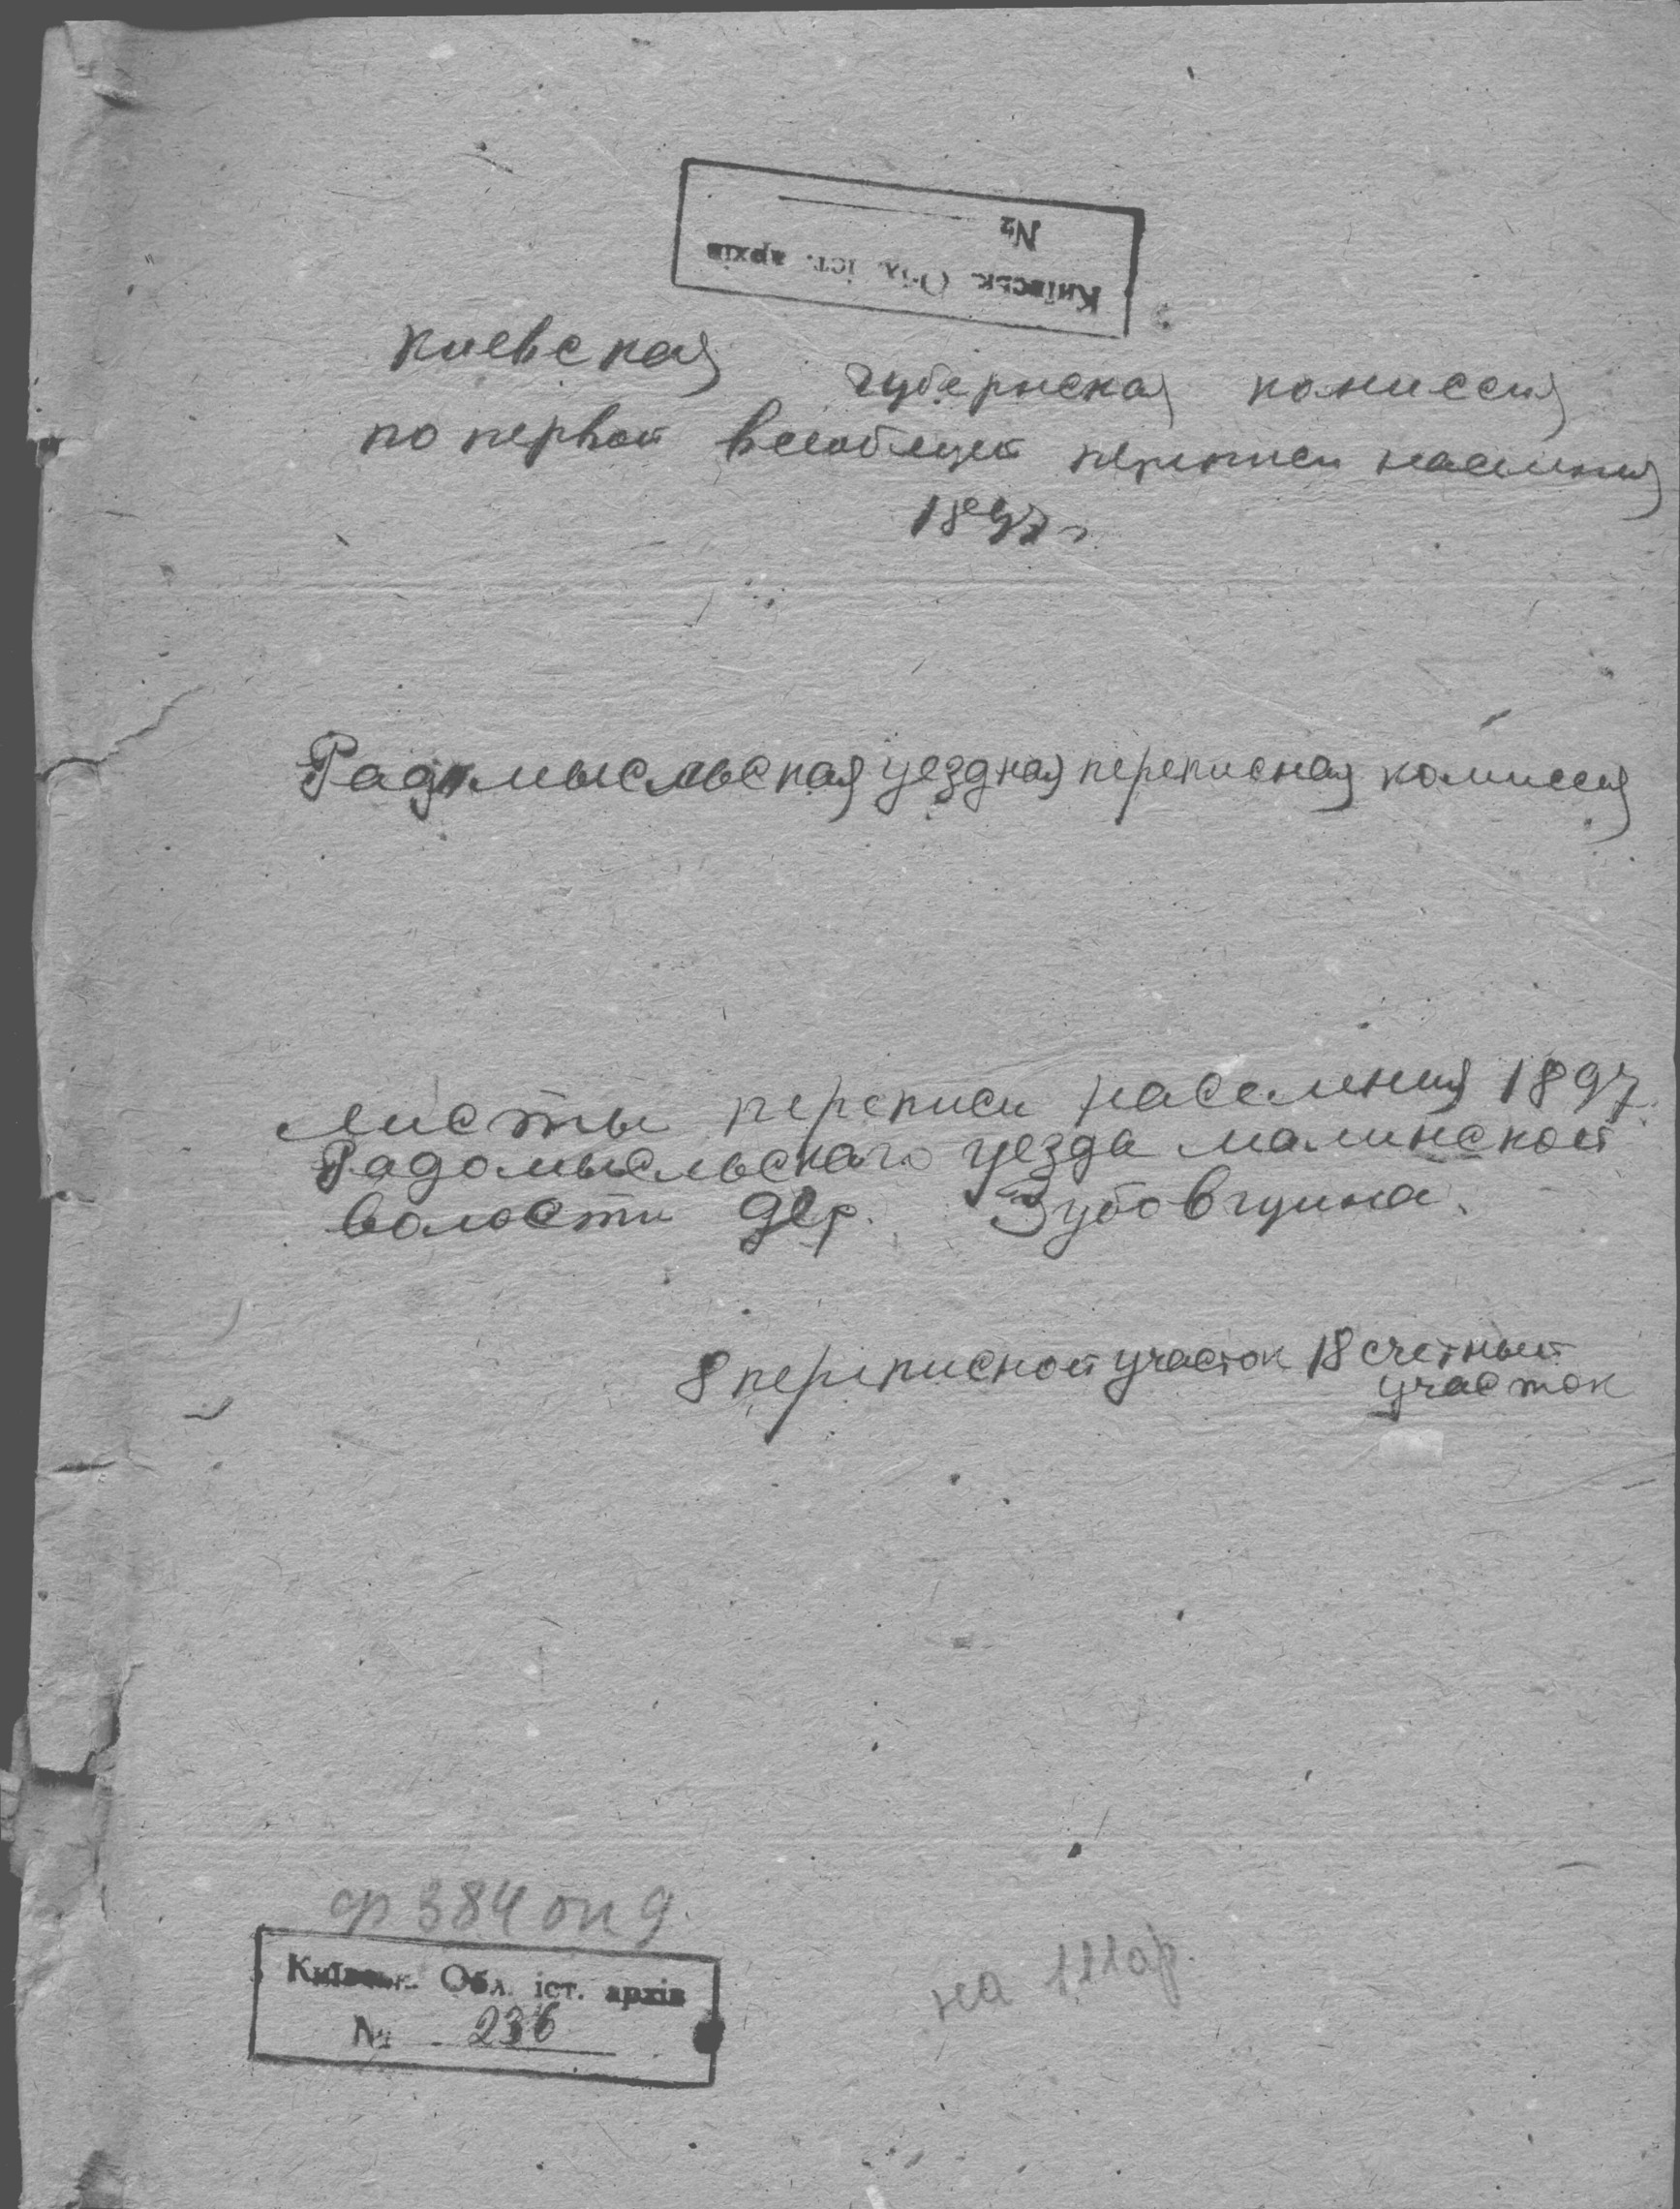 №
Київськ. Обл. іст. архів
Киевская губернская комиссия
по первой всеобщей переписи населения
1897 г
Радомысльская уездная переписная комиссия
Листы переписи населения 1897
Радомысльского уезда Малинской
волости дер. Зубовщина.
8 переписной участок 18 счетный
участок
ф 384 оп 9
Київськ. Обл. іст. архів
№ 236
на